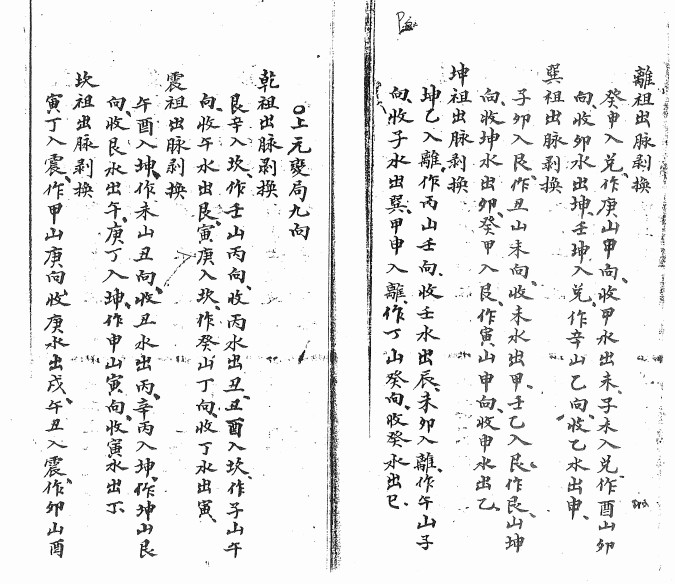 離祖出脉剥換
癸申入兑、作庚山甲向、收甲水出未、子未入兑、作酉山卯
向、收卯水出坤、壬坤入兑、作辛山乙向、收乙水出申、
巽祖出脉剥換
子卯入艮、作丑山未向、收未水出甲、壬乙入艮、作艮山坤
向、收坤水出卯、癸甲入艮、作寅山申向、收申水出乙、
坤祖出脉剥換
坤乙入離、作丙山壬向、收壬水出辰、未卯入離、作午山子
向、收子水出巽、甲申入離、作丁山癸向、收癸水出巳、
○上元變局九向
乾祖出脉剥換
艮辛入坎、作壬山丙向、收丙水出丑、丑酉入坎、作子山午
向、收午水出艮、寅庚入坎、作癸山丁向、收丁水出寅、
震祖出脉剥換
午酉入坤、作未山丑向、收丑水出丙、辛丙入坤、作坤山艮
向、收艮水出午、庚丁入坤、作申山寅向、收寅水出丁、
坎祖出脉剥換
寅丁入震、作甲山庚向、收庚水出戌、午丑入震、作卯山酉